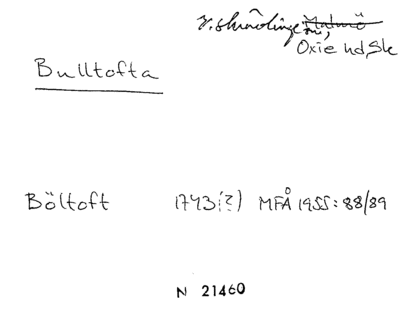 V. Skrävlinge
Malmö
Oxie hd, Sk
Bulltofta
Böltoft 1743(?) MFÅ 1955:88/89
N 21460